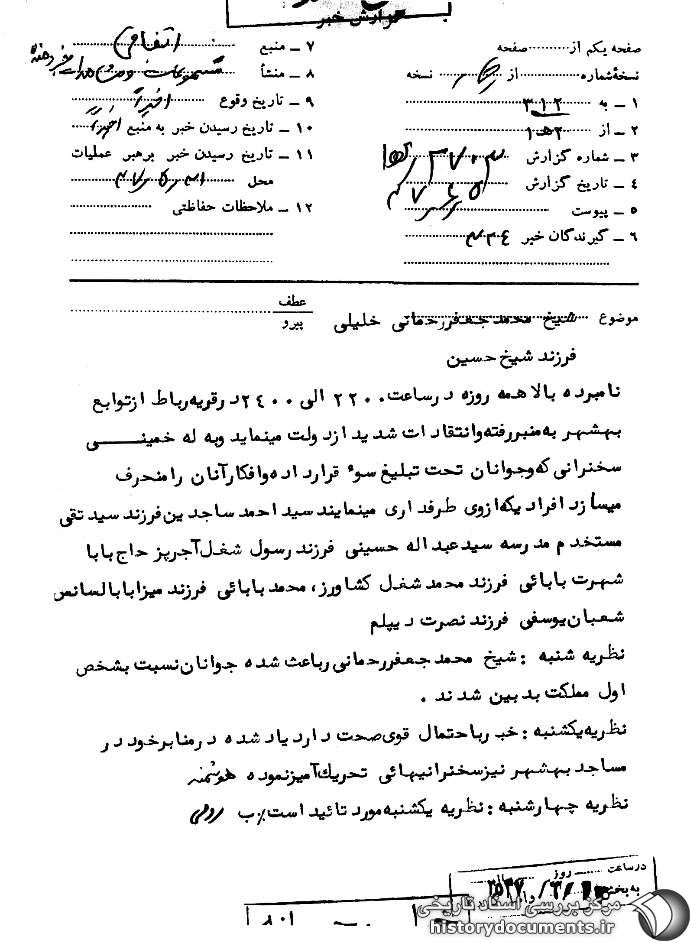 گزارش خبر
صفحه یکم از ........ صفحه
نسخهٔ شماره ........ از ........ نسخه
۱ ــ به ۳۱۲
۲ ــ از
۳ ــ شماره گزارش
۴ ــ تاریخ گزارش
۵ ــ پیوست
۶ ــ گیرندگان خبر
۷ ــ منبع
۸ ــ منشأ
۹ ــ تاریخ وقوع اخیراً
۱۰ ــ تاریخ رسیدن خبر به منبع اخیراً
۱۱ ــ تاریخ رسیدن خبر برهبر عملیات
محل
۱۲ ــ ملاحظات حفاظتی
موضوع شیخ محمد جعفر رحمانی خلیلی
عطف
پیرو
فرزند شیخ حسین
نامبرده بالا همه روزه در ساعت ۲۲۰۰ الی ۲۴۰۰ در قریه رباط از توابع
بهشهر به منبر رفته و انتقادات شدید از دولت مینماید و به له خمینی
سخنرانی که و جوانان تحت تبلیغ سوء قرار داده و افکار آنان را منحرف
میسازد افرادیکه از وی طرفداری مینمایند سید احمد ساجدین فرزند سید تقی
مستخدم مدرسه سید عبداله حسینی فرزند رسول شغل آجرپز حاج بابا
شهرت بابائی فرزند محمد شغل کشاورز، محمد بابائی فرزند میزا بابا لسانس
شعبان یوسفی فرزند نصرت دیپلم
نظریه شنبه : شیخ محمد جعفر رحمانی رباعث شده جوانان نسبت بشخص
اول مملکت بدبین شدند .
نظریه یکشنبه : خبر باحتمال قوی صحت دارد یاد شده در منابر خود در
مساجد بهشهر نیز سخنرانیهائی تحریک آمیز نموده هوشمند
نظریه چهارشنبه : نظریه یکشنبه مورد تائید است٪ ب روحی
در ساعت ........ روز
به بخش
مرکز بررسی اسناد تاریخی
historydocuments.ir